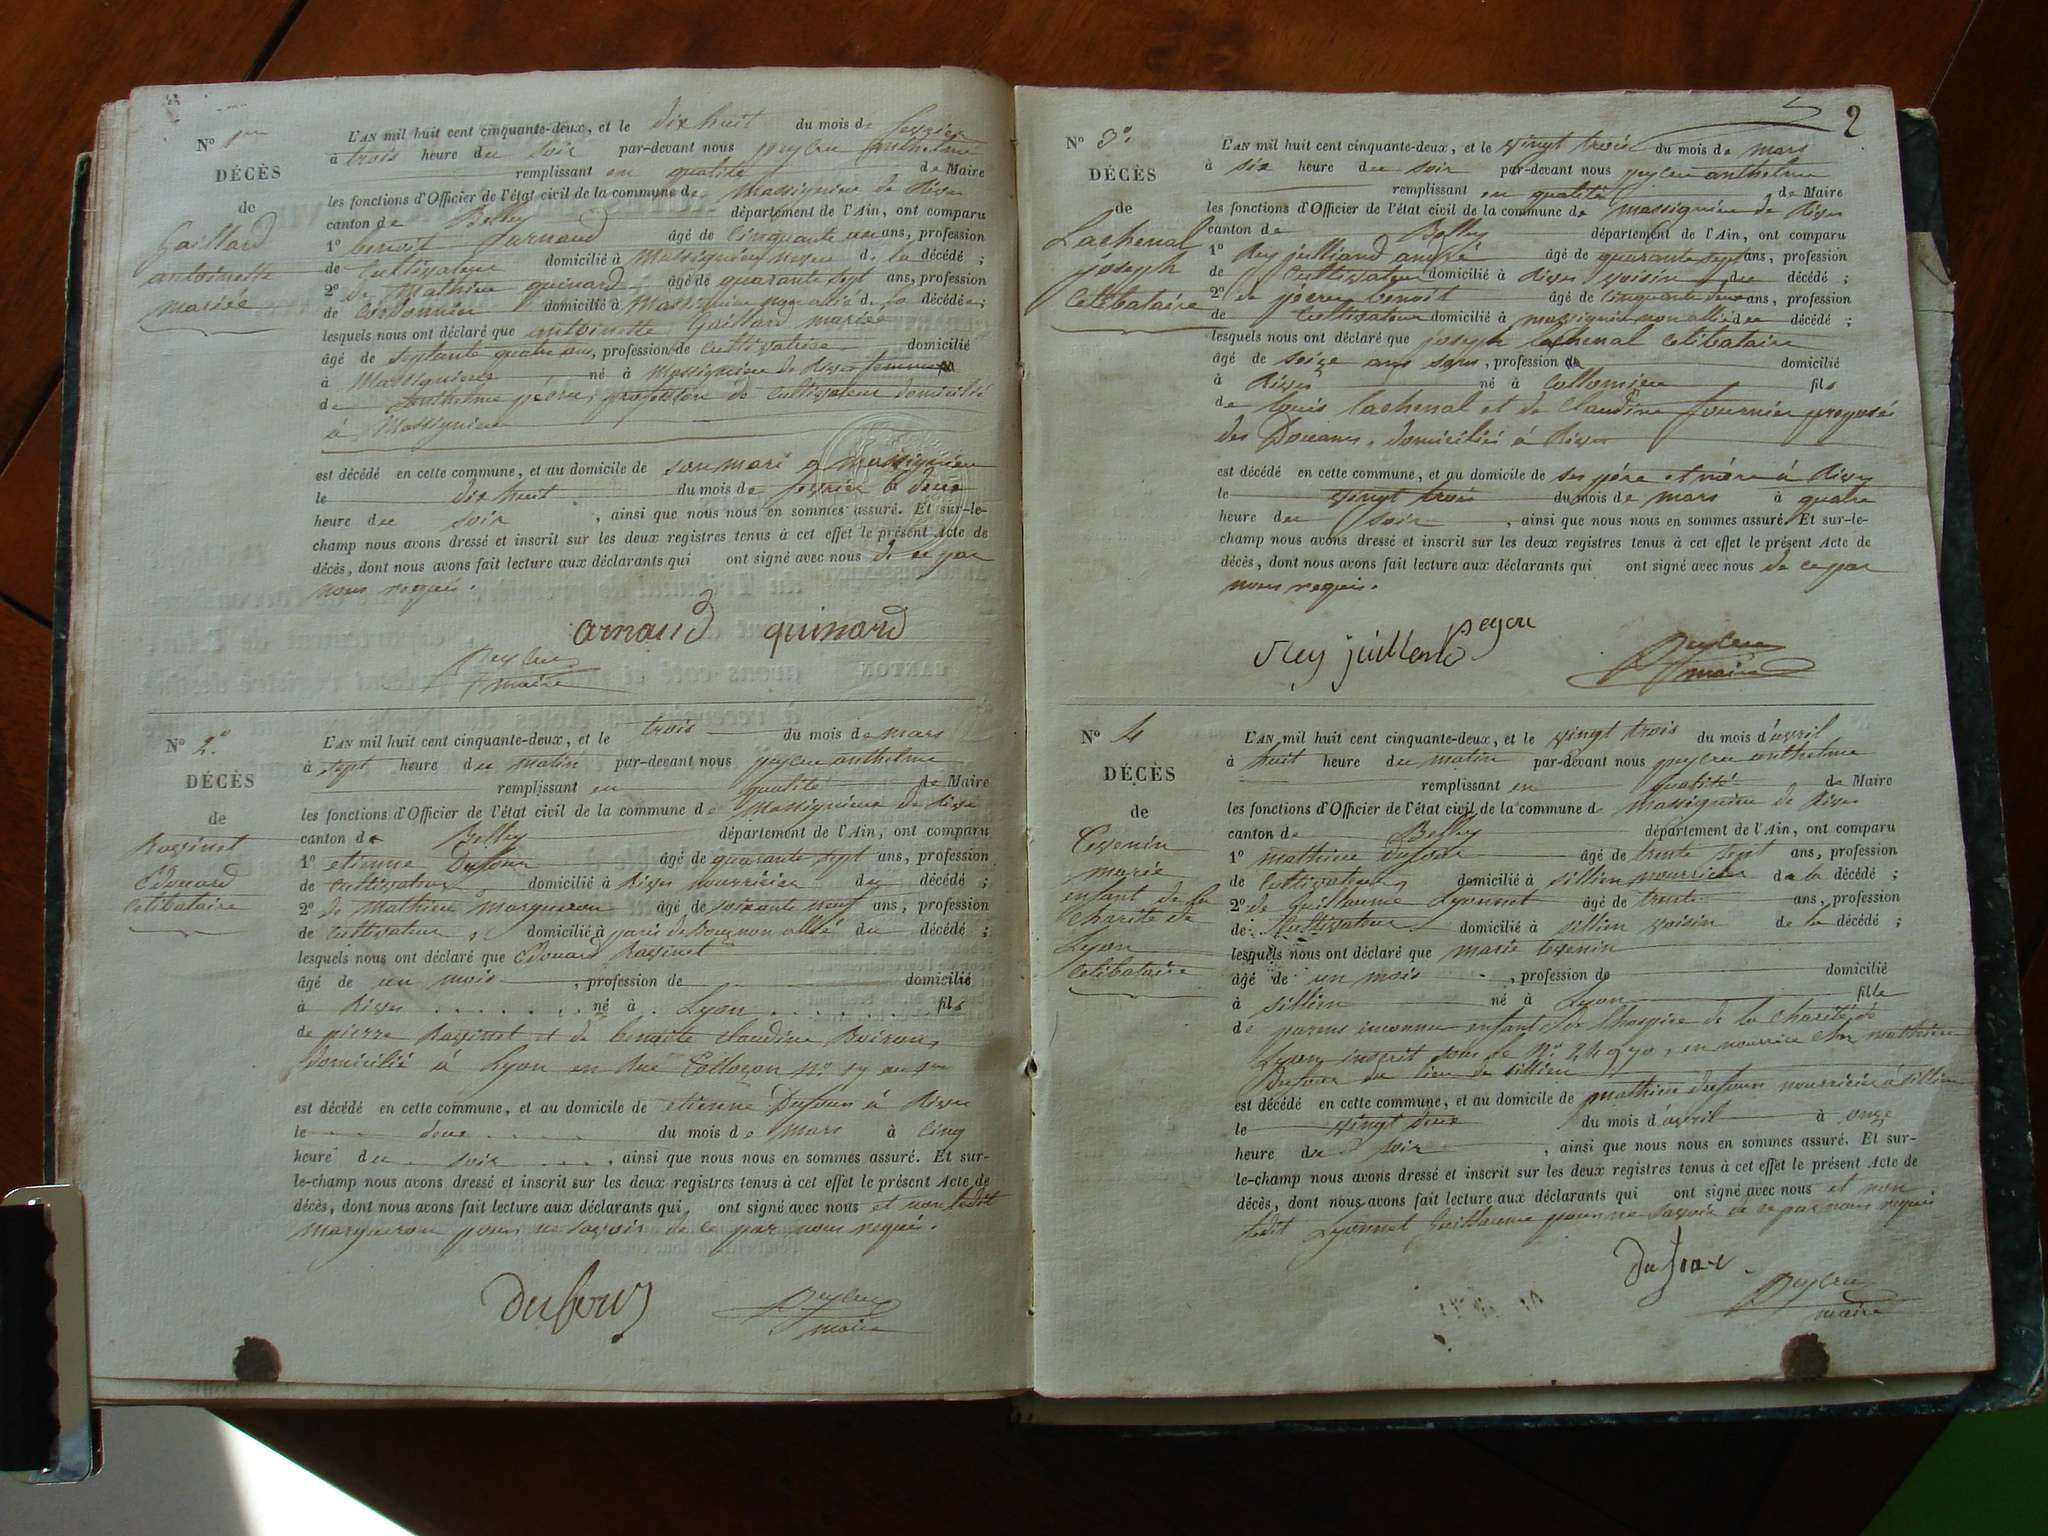 N° 1er
DÉCÈS
de
Gaillard
antoinette
mariée
L'AN mil huit cent cinquante-deux, et le dix huit du mois de fevrier
à trois heure du soir par-devant nous peyeu anthelme
remplissant en qualité de Maire
les fonctions d'Officier de l'état civil de la commune de Massignieu de Rives
canton de Belley département de l'Ain, ont comparu
1° benoit arnaud âgé de cinquante ans, profession
de Cultivateur domicilié à Massignieu de la décédé ;
2° de Mathieu quinard âgé de quarante sept ans, profession
de Cordonnier domicilié à Massignieu non allié de la décédée ;
lesquels nous ont déclaré que antoinette Gaillard mariée
âgé de septante quatre ans, profession de Cultivatrice domicilié
à Massignieu né à Massignieu de Rives femme
de anthelme profession de Cultivateur domicilié
à Massignieu
est décédé en cette commune, et au domicile de son mari a Massignieu
le dix huit du mois de fevrier à deux
heure du soir, ainsi que nous nous en sommes assuré. Et sur-le-
champ nous avons dressé et inscrit sur les deux registres tenus à cet effet le présent Acte de
décès, dont nous avons fait lecture aux déclarants qui ont signé avec nous de ce par
nous requis.
arnaud quinard
maire
N° 2°
DÉCÈS
de
Ravinet
Edouard
Celibataire
L'AN mil huit cent cinquante-deux, et le trois du mois de mars
à sept heure du matin par-devant nous peyeu anthelme
remplissant en qualité de Maire
les fonctions d'Officier de l'état civil de la commune de Massignieu de Rives
canton de Belley département de l'Ain, ont comparu
1° etienne Dufour âgé de quarante sept ans, profession
de Cultivateur domicilié à Rives nourricier du décédé ;
2° de Mathieu Margueron âgé de soixante neuf ans, profession
de Cultivateur, domicilié à non allié du décédé ;
lesquels nous ont déclaré que Edouard Ravinet
âgé de un mois, profession de domicilié
à Rives né à Lyon fils
de pierre Ravinet et de benoite claudine Boiron,
Domicilié à Lyon en Rue n° 17 au 1er
est décédé en cette commune, et au domicile de etienne Dufour à Rives
le deux du mois de mars à Cinq
heure du soir, ainsi que nous nous en sommes assuré. Et sur-
le-champ nous avons dressé et inscrit sur les deux registres tenus à cet effet le présent Acte de
décès, dont nous avons fait lecture aux déclarants qui ont signé avec nous et non ledit
Margueron pour ne savoir de ce par nous requis.
Dufour
maire
2
N° 3°
DÉCÈS
de
Lachenal
joseph
Celibataire
L'AN mil huit cent cinquante-deux, et le vingt trois du mois de mars
à six heure du soir par-devant nous peyeu anthelme
remplissant en qualité de Maire
les fonctions d'Officier de l'état civil de la commune de Massignieu de Rives
canton de Belley département de l'Ain, ont comparu
1° Rey juilliard andré âgé de quarante sept ans, profession
de Cultivateur domicilié à Rives voisin du décédé ;
2° de benoit âgé de cinquante deux ans, profession
de Cultivateur domicilié à massignieu non allié du décédé ;
lesquels nous ont déclaré que joseph Lachenal Celibataire
âgé de seize ans sans, profession de domicilié
à Rives né à Collomieu fils
de Louis Lachenal et de Claudine fournier preposé
des Douanes, domiciliés à Rives
est décédé en cette commune, et au domicile de ses père et mère à Rives
le vingt trois du mois de mars à quatre
heure du soir, ainsi que nous nous en sommes assuré. Et sur-le-
champ nous avons dressé et inscrit sur les deux registres tenus à cet effet le présent Acte de
décès, dont nous avons fait lecture aux déclarants qui ont signé avec nous de ce par
nous requis.
Rey juilland
maire
N° 4
DÉCÈS
de
Tevenin
marie
enfant de la
Charité de
Lyon
Celibataire
L'AN mil huit cent cinquante-deux, et le vingt trois du mois d'avril
à huit heure du matin par-devant nous peyeu anthelme
remplissant en qualité de Maire
les fonctions d'Officier de l'état civil de la commune de Massignieu de Rives
canton de Belley département de l'Ain, ont comparu
1° mathieu dufour âgé de trente sept ans, profession
de Cultivateur, domicilié à sillien nourricier de la décédé ;
2° de Guillaume Lyonnet âgé de trente ans, profession
de Cultivateur domicilié à sillien voisin de la décédé ;
lesquels nous ont déclaré que marie tevenin
âgé de un mois, profession de domicilié
à sillien né à Lyon fille
de parens inconnu enfant de l'hospice de la Charité de
Lyon inscrit sous le N° en nourrice chez mathieu
Dufour du lieu de sillien
est décédé en cette commune, et au domicile de mathieu dufour nourricier à sillien
le vingt deux du mois d'avril à onze
heure du soir, ainsi que nous nous en sommes assuré. Et sur-
le-champ nous avons dressé et inscrit sur les deux registres tenus à cet effet le présent Acte de
décès, dont nous avons fait lecture aux déclarants qui ont signé avec nous et non
ledit Lyonnet Guillaume pour ne savoir de ce par nous requis
Dufour
maire